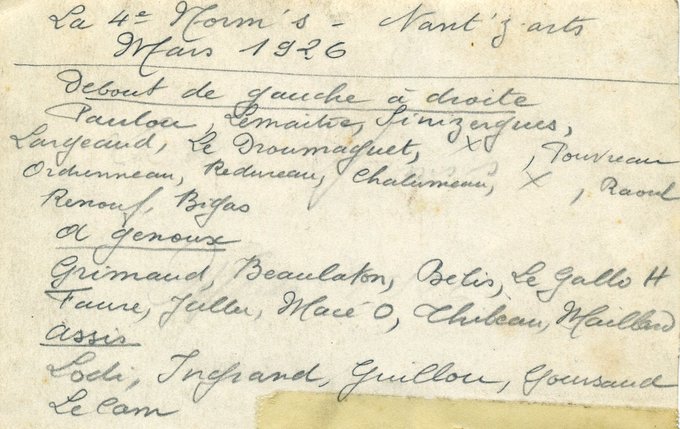 La 4e Norm's - Nant'z-arts
Mars 1926
Debout de gauche à droite
Paulou, Lemaitre, Sinizergues,
Largeaud, Le Droumaguet, X, Pouvreau
Ordonneau, Redureau, Chalumeau, X, Raoul
Renouf, Bigas
A genoux
Grimaud, Beaulaton, Belis, Le Gallo H
Faure, Juller, Macé O, Thibeau, Maillard
Assis
Lodi, Ingrand, Guillou, Goursaud
Le Cam